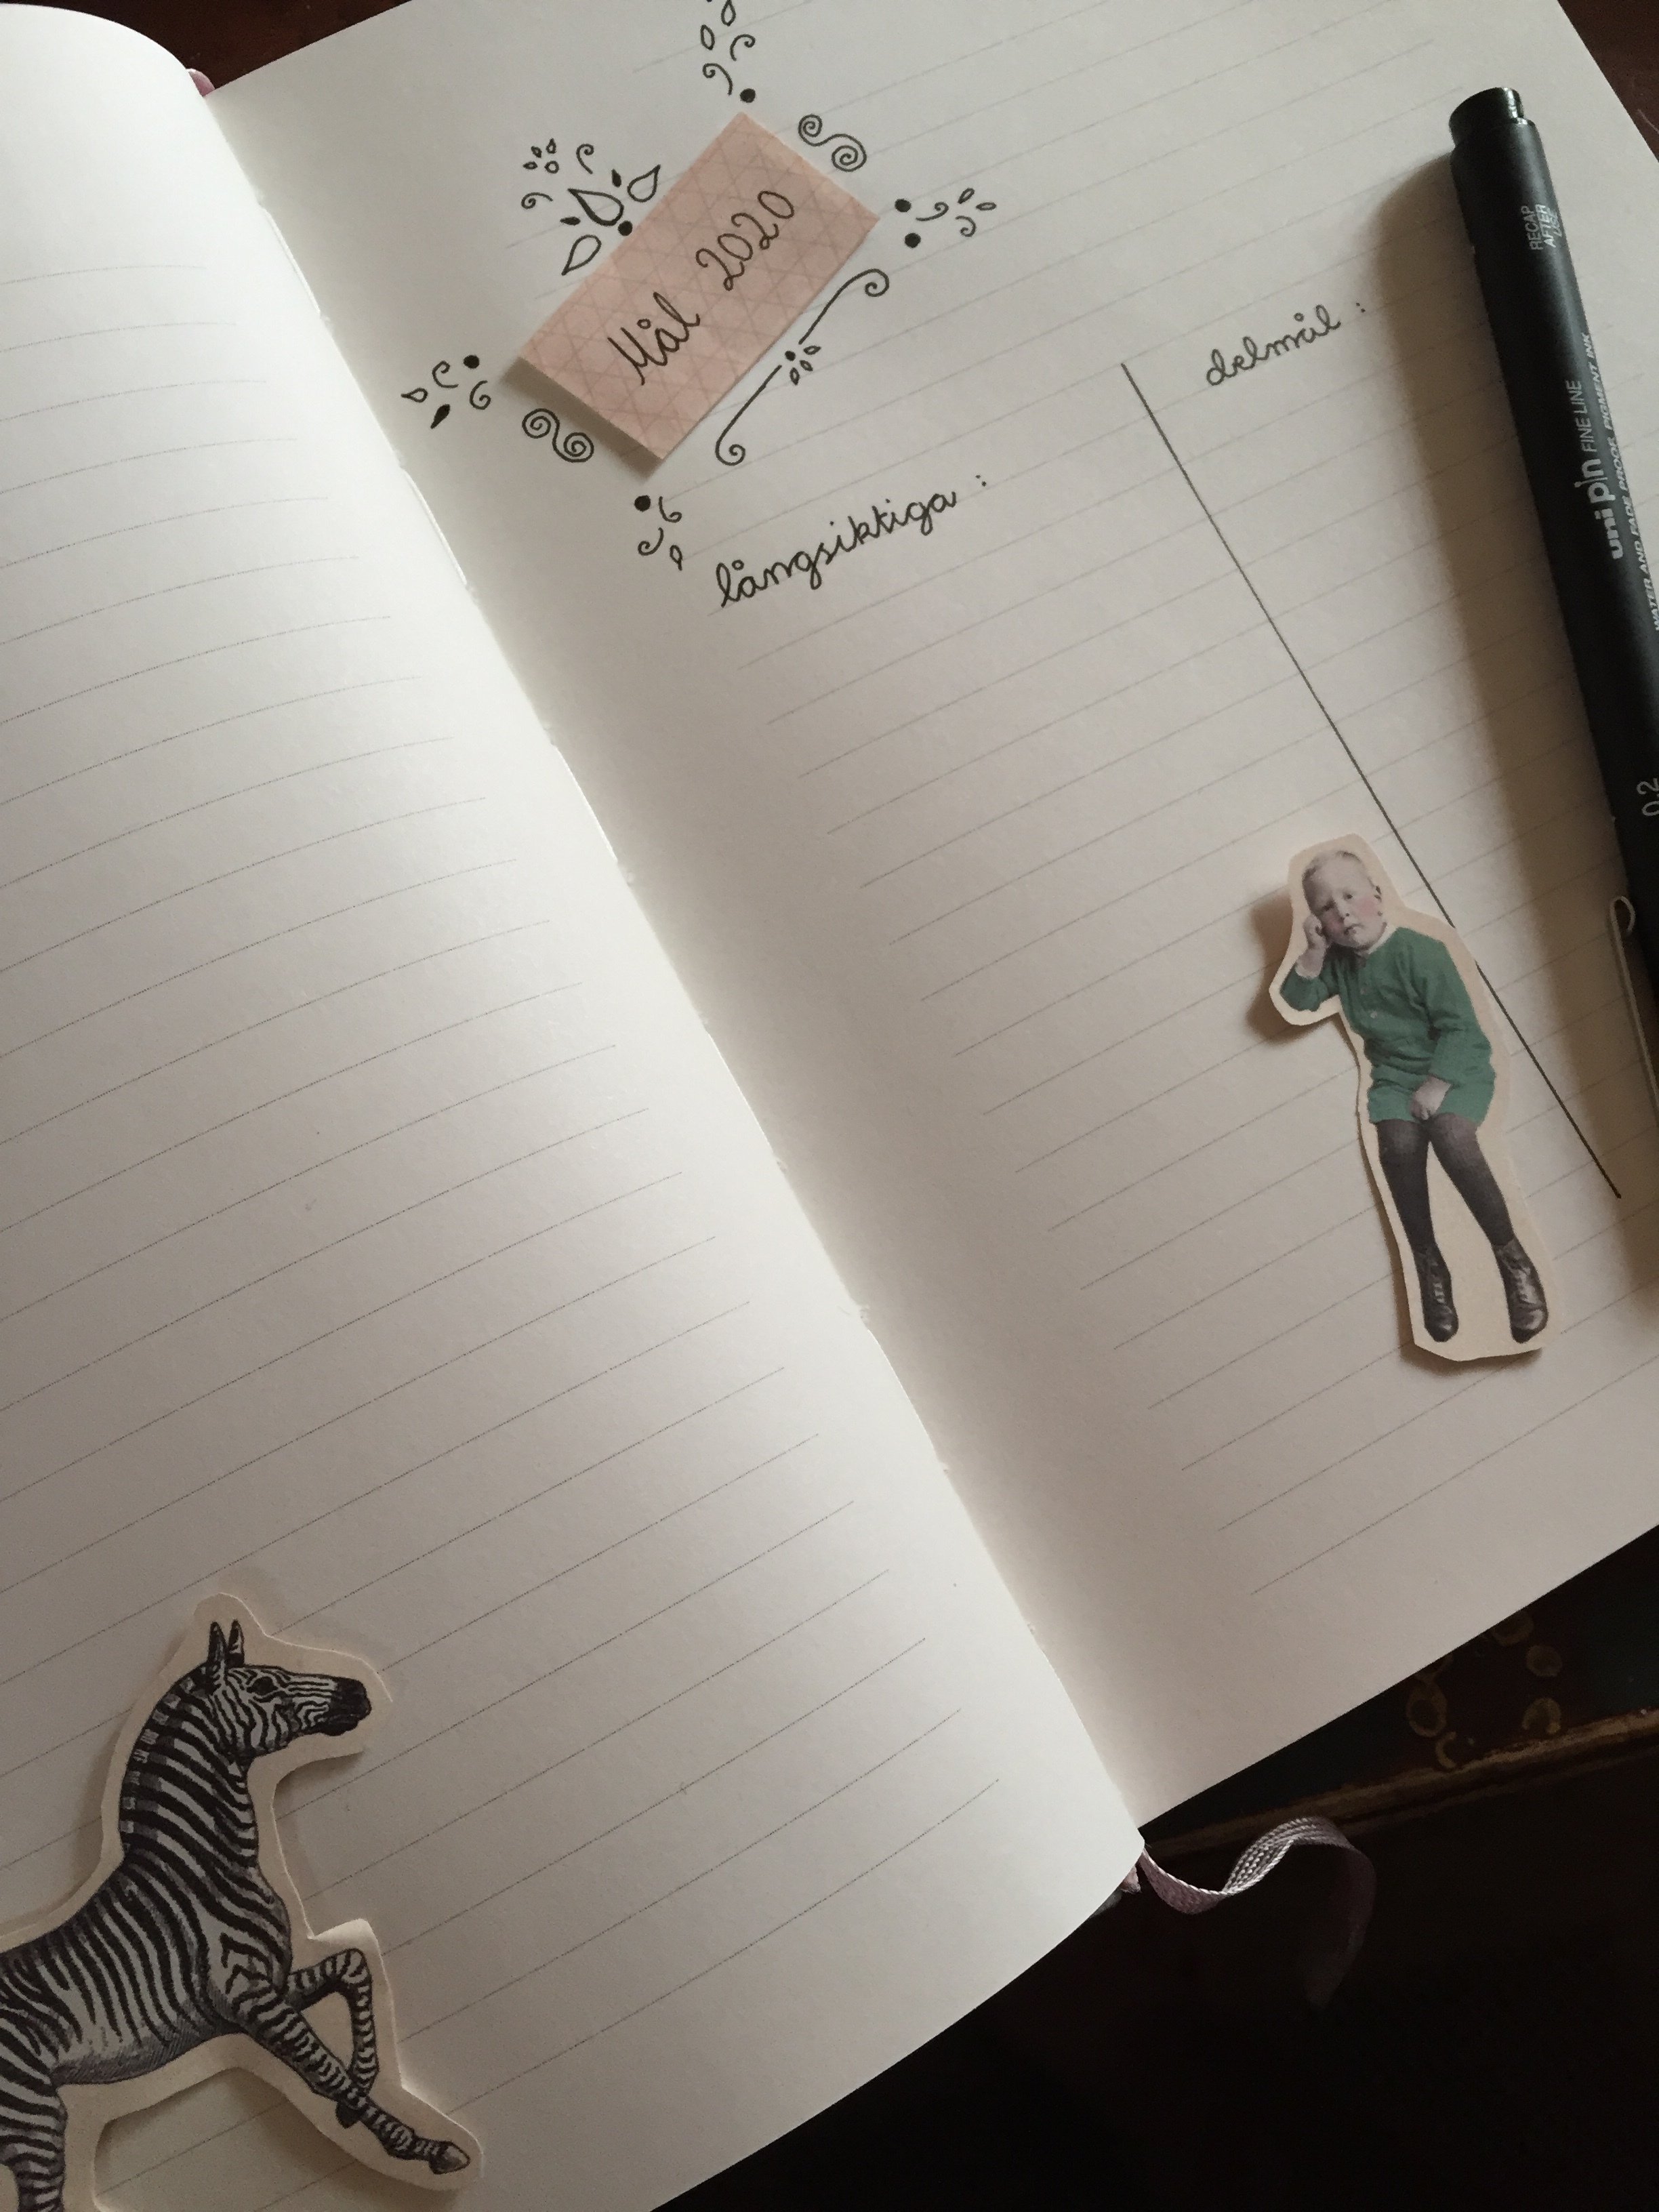 Mål 2020
långsiktiga :
delmål :
RECAP
AFTER
USE
uni pin FINE LINE
WATER AND FADE PROOF PIGMENT INK
0.2